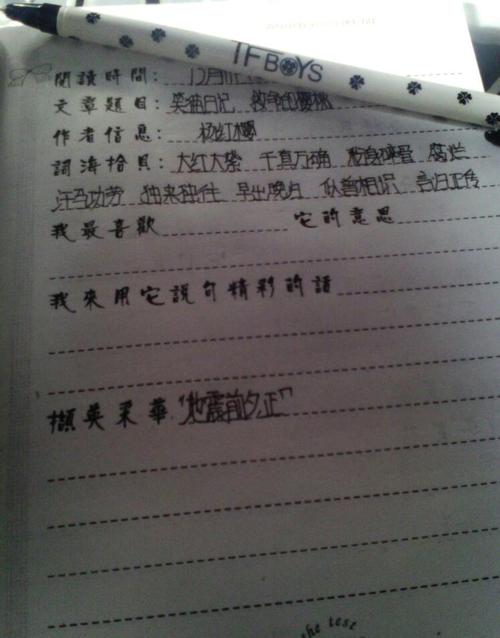 TFBOYS
閱讀時間：12月
文章題目：笑猫日记
作者信息：杨红樱
詞海拾貝：大红大紫 千真万确 粉身碎骨 腐烂
汗马功劳 独来独往 早出晚归 似曾相识 言归正传
我最喜歡 它的意思
我來用它說句精彩的話
擷英采華 "地震前夕正"
the test